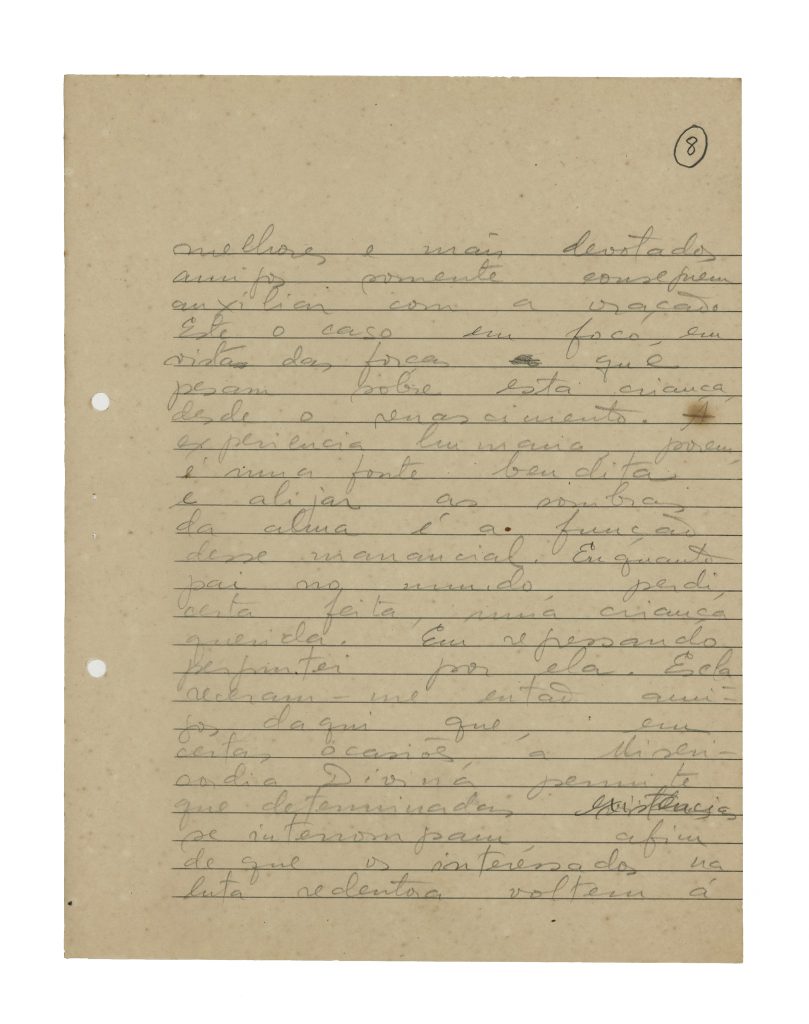 8
melhores e mais devotados
amigos somente conseguem
auxiliar com a oração
Este o caso em foco em
vistas das forças que
pesam sobre esta criança,
desde o renascimento. A
experiencia humana, porem,
é uma fonte bendita
e alijar as sombras
da alma é a função
desse manancial. Enquanto
pai no mundo perdi
certa feita, uma criança
querida. Em regressando
perguntei por ela. Escla
receram-me então ami-
gos daqui que, em
certas ocasiões a Miseri-
cordia Divina permite
que determinadas existencias
se interrompam afim
de que os interéssados na
luta redentora voltem á